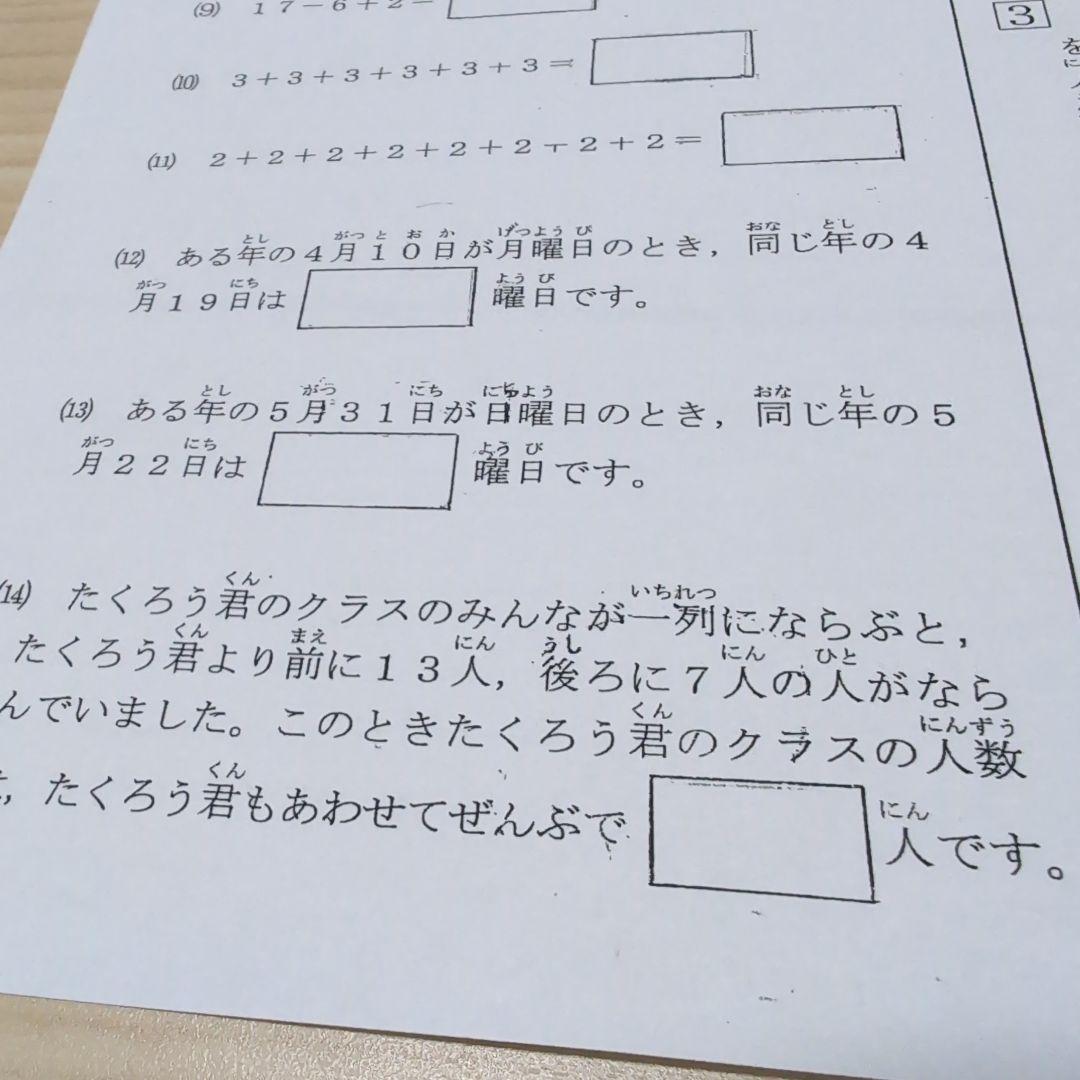 (9) 17－6＋2＝
(10) 3＋3＋3＋3＋3＋3＝
(11) 2＋2＋2＋2＋2＋2＋2＋2＝
とし がつ と お か げつよう び おな とし
(12) ある年の4月10日が月曜日のとき，同じ年の4
がつ にち よう び
月19日は 曜日です。
とし がつ にち にちよう おな とし
(13) ある年の5月31日が日曜日のとき，同じ年の5
がつ にち よう び
月22日は 曜日です。
くん いちれつ
(14) たくろう君のクラスのみんなが一列にならぶと，
くん まえ にん うし にん ひと
たくろう君より前に13人，後ろに7人の人がなら
くん にんずう
んでいました。このときたくろう君のクラスの人数
くん にん
，たくろう君もあわせてぜんぶで 人です。
3
を
に